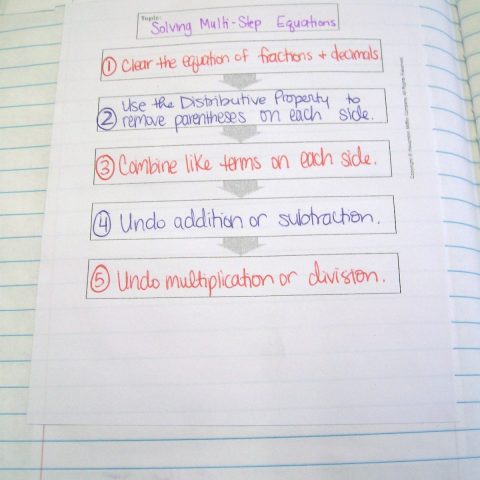 Topic:
Solving Multi-Step Equations
① Clear the equation of fractions + decimals
② Use the Distributive Property to
remove parentheses on each side.
③ Combine like terms on each side.
④ Undo addition or subtraction.
⑤ Undo multiplication or division.